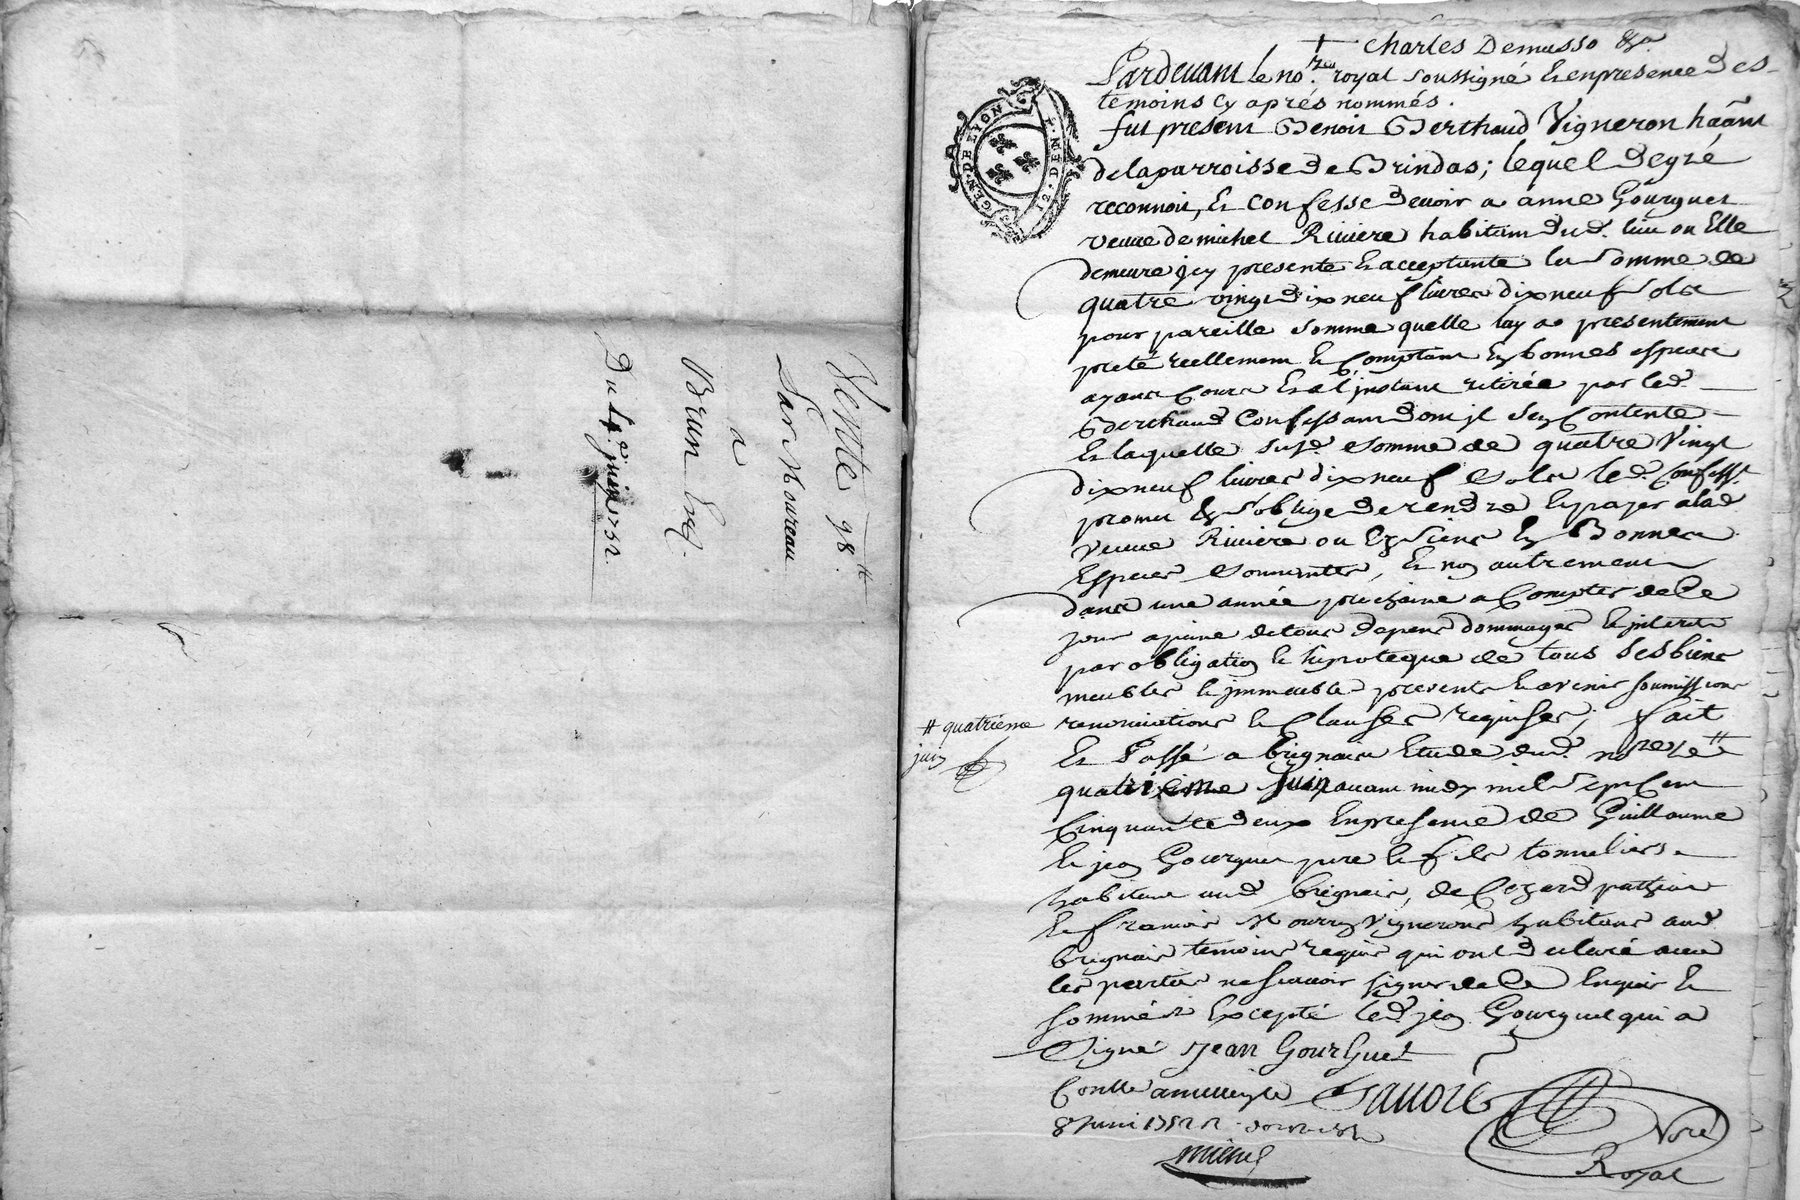 Vente 98.ᵗᵗ
Par
a
Brun
Du 4.ᵉ juin 1752.
Charles Demusso
GEN. DE LYON
12. DEN
Pardevant le no.ʳᵉ royal soussigné & en presence des
temoins cy aprés nommés.
fut present Benoit Berthaud Vigneron haānt
de la parroisse de Brindas; lequel de gré
reconnoit, et confesse devoir a anne Gourguet
veuve de michel Riviere habitant dud. lieu ou Elle
demeure jcy presente & acceptante la somme de
quatre vingt dix neuf livres dix neuf sols
pour pareille somme quelle luy a presentement
preté reellement & Comptant En bonnes especes
ayant Cours & a l'jnstant retirée par led.
Berthaud Confessant dont jl s'en Contente
Et laquelle susd. somme de quatre Vingt
dix neuf livres dix neuf sols led. Confess.ᵗ
promet & s'oblige de rendre & payer a lad
veuve Riviere ou Es siens En Bonnes
Especes sonnantes, et non autrement
dans une année prochaine a Compter de Ce
jour a peine de tous depens dommages & jnterets
par obligation & hipoteque de tous ses biens
meubles & jmmeubles presents & avenir soumissions
renonciations & Clauses requises; fait
Et Passé a brignais Etude dud. no.ʳᵉ le ᵗᵗ
quatrieme Juin avant midy mil sept Cent
Cinquante deux En presence de Guillaume
& jean Gourguet pere & fils tonneliers
habitans aud. brignais, de Cezard
& francois vignerons habitans aud.
brignais temoins requis qui ont declaré avec
les parties ne scavoir signer de Ce Enquis &
sommés Excepté led. jean Gourguet qui a
signé Jean Gourguet
ᵗᵗ quatrieme
juin
Conllé
8 Juin 1752
Michel
Royal